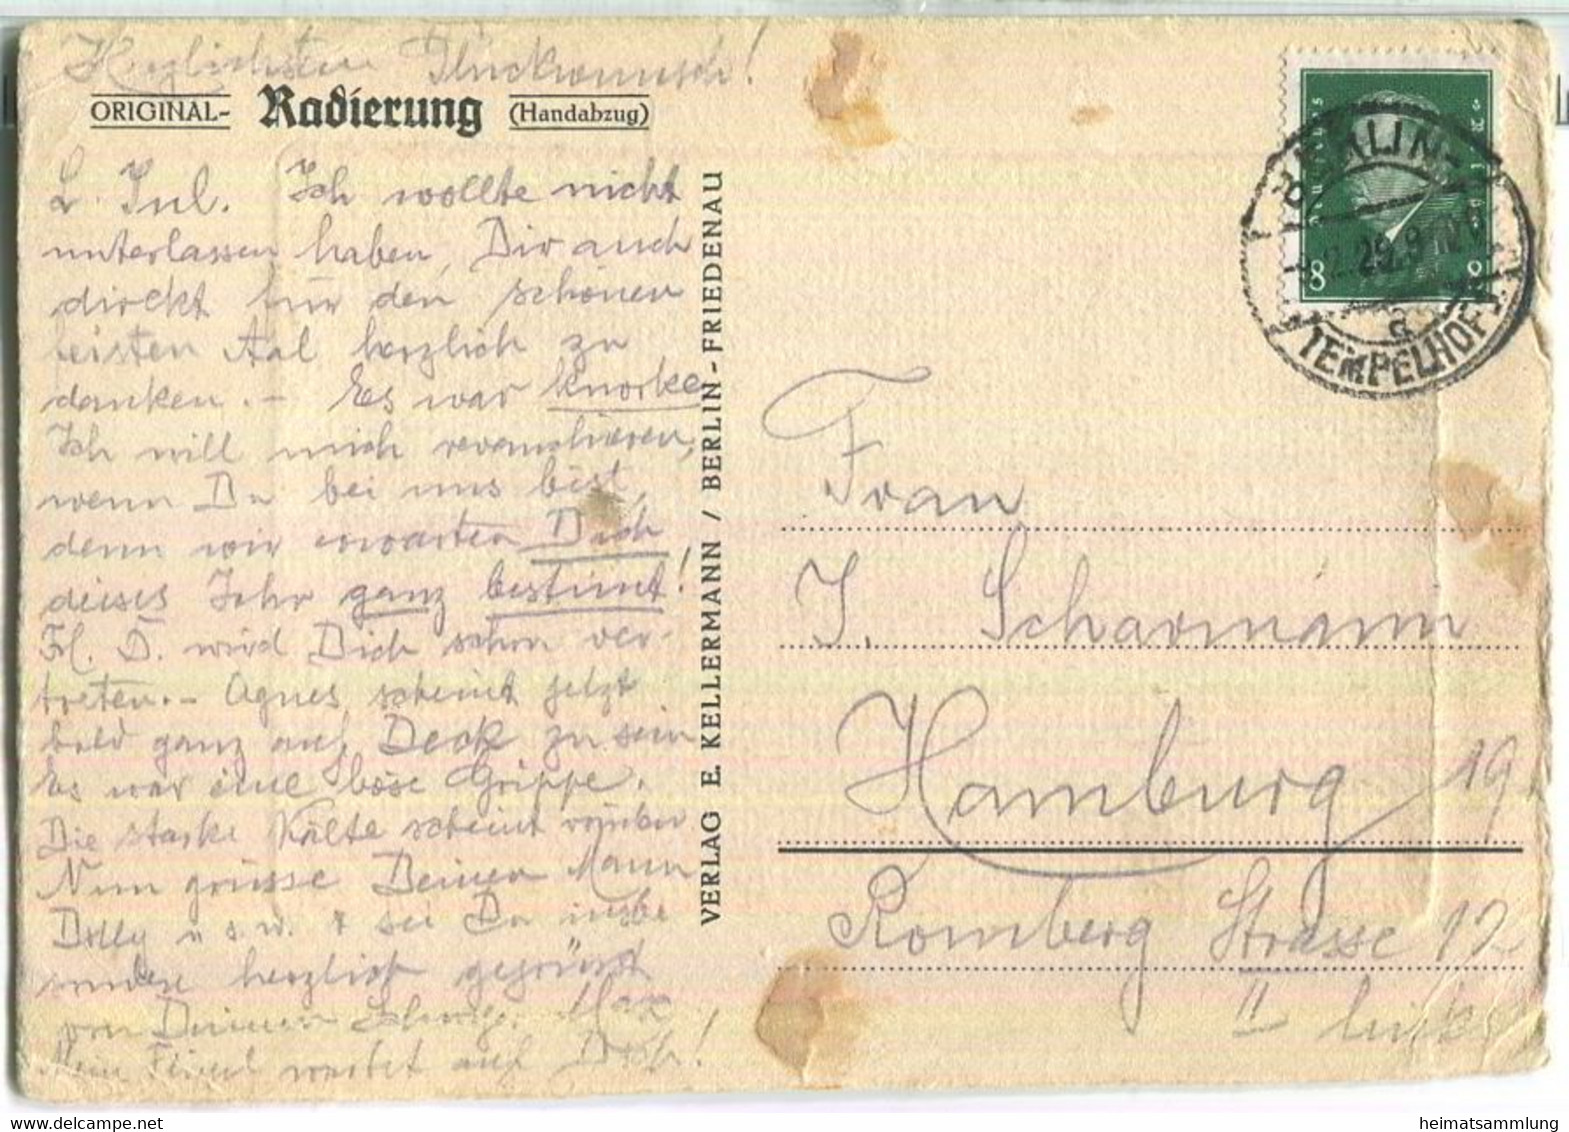 Herzlichsten Glückwunsch!
ORIGINAL- Radierung (Handabzug)
L. Jul. Ich wollte nicht
unterlassen haben, Dir auch
direkt für den schönen
Aal herzlich zu
danken. – Es war knorke
Ich will mich revanchieren,
wenn Du bei uns bist,
denn wir erwarten Dich
dieses Jahr ganz bestimt!
Frl. D. wird Dich schon ver-
treten. – Agnes scheint jetzt
bald ganz auf Deck zu sein
Es war eine böse Grippe.
Die starke Kälte scheint vorüber
Nun grüsse Deinen Mann
Dolly u s. w. & sei Du insbe
sondere herzlich gegrüsst
von Deinem Max
Mein wartet auf Dich!
VERLAG E. KELLERMANN / BERLIN-FRIEDENAU
Deutsches Reich
8 8
BERLIN-
TEMPELHOF 1
29.9
a
Frau
J. Scharmann
Hamburg 19.
Romberg Strasse 12
II links
heimatsammlung